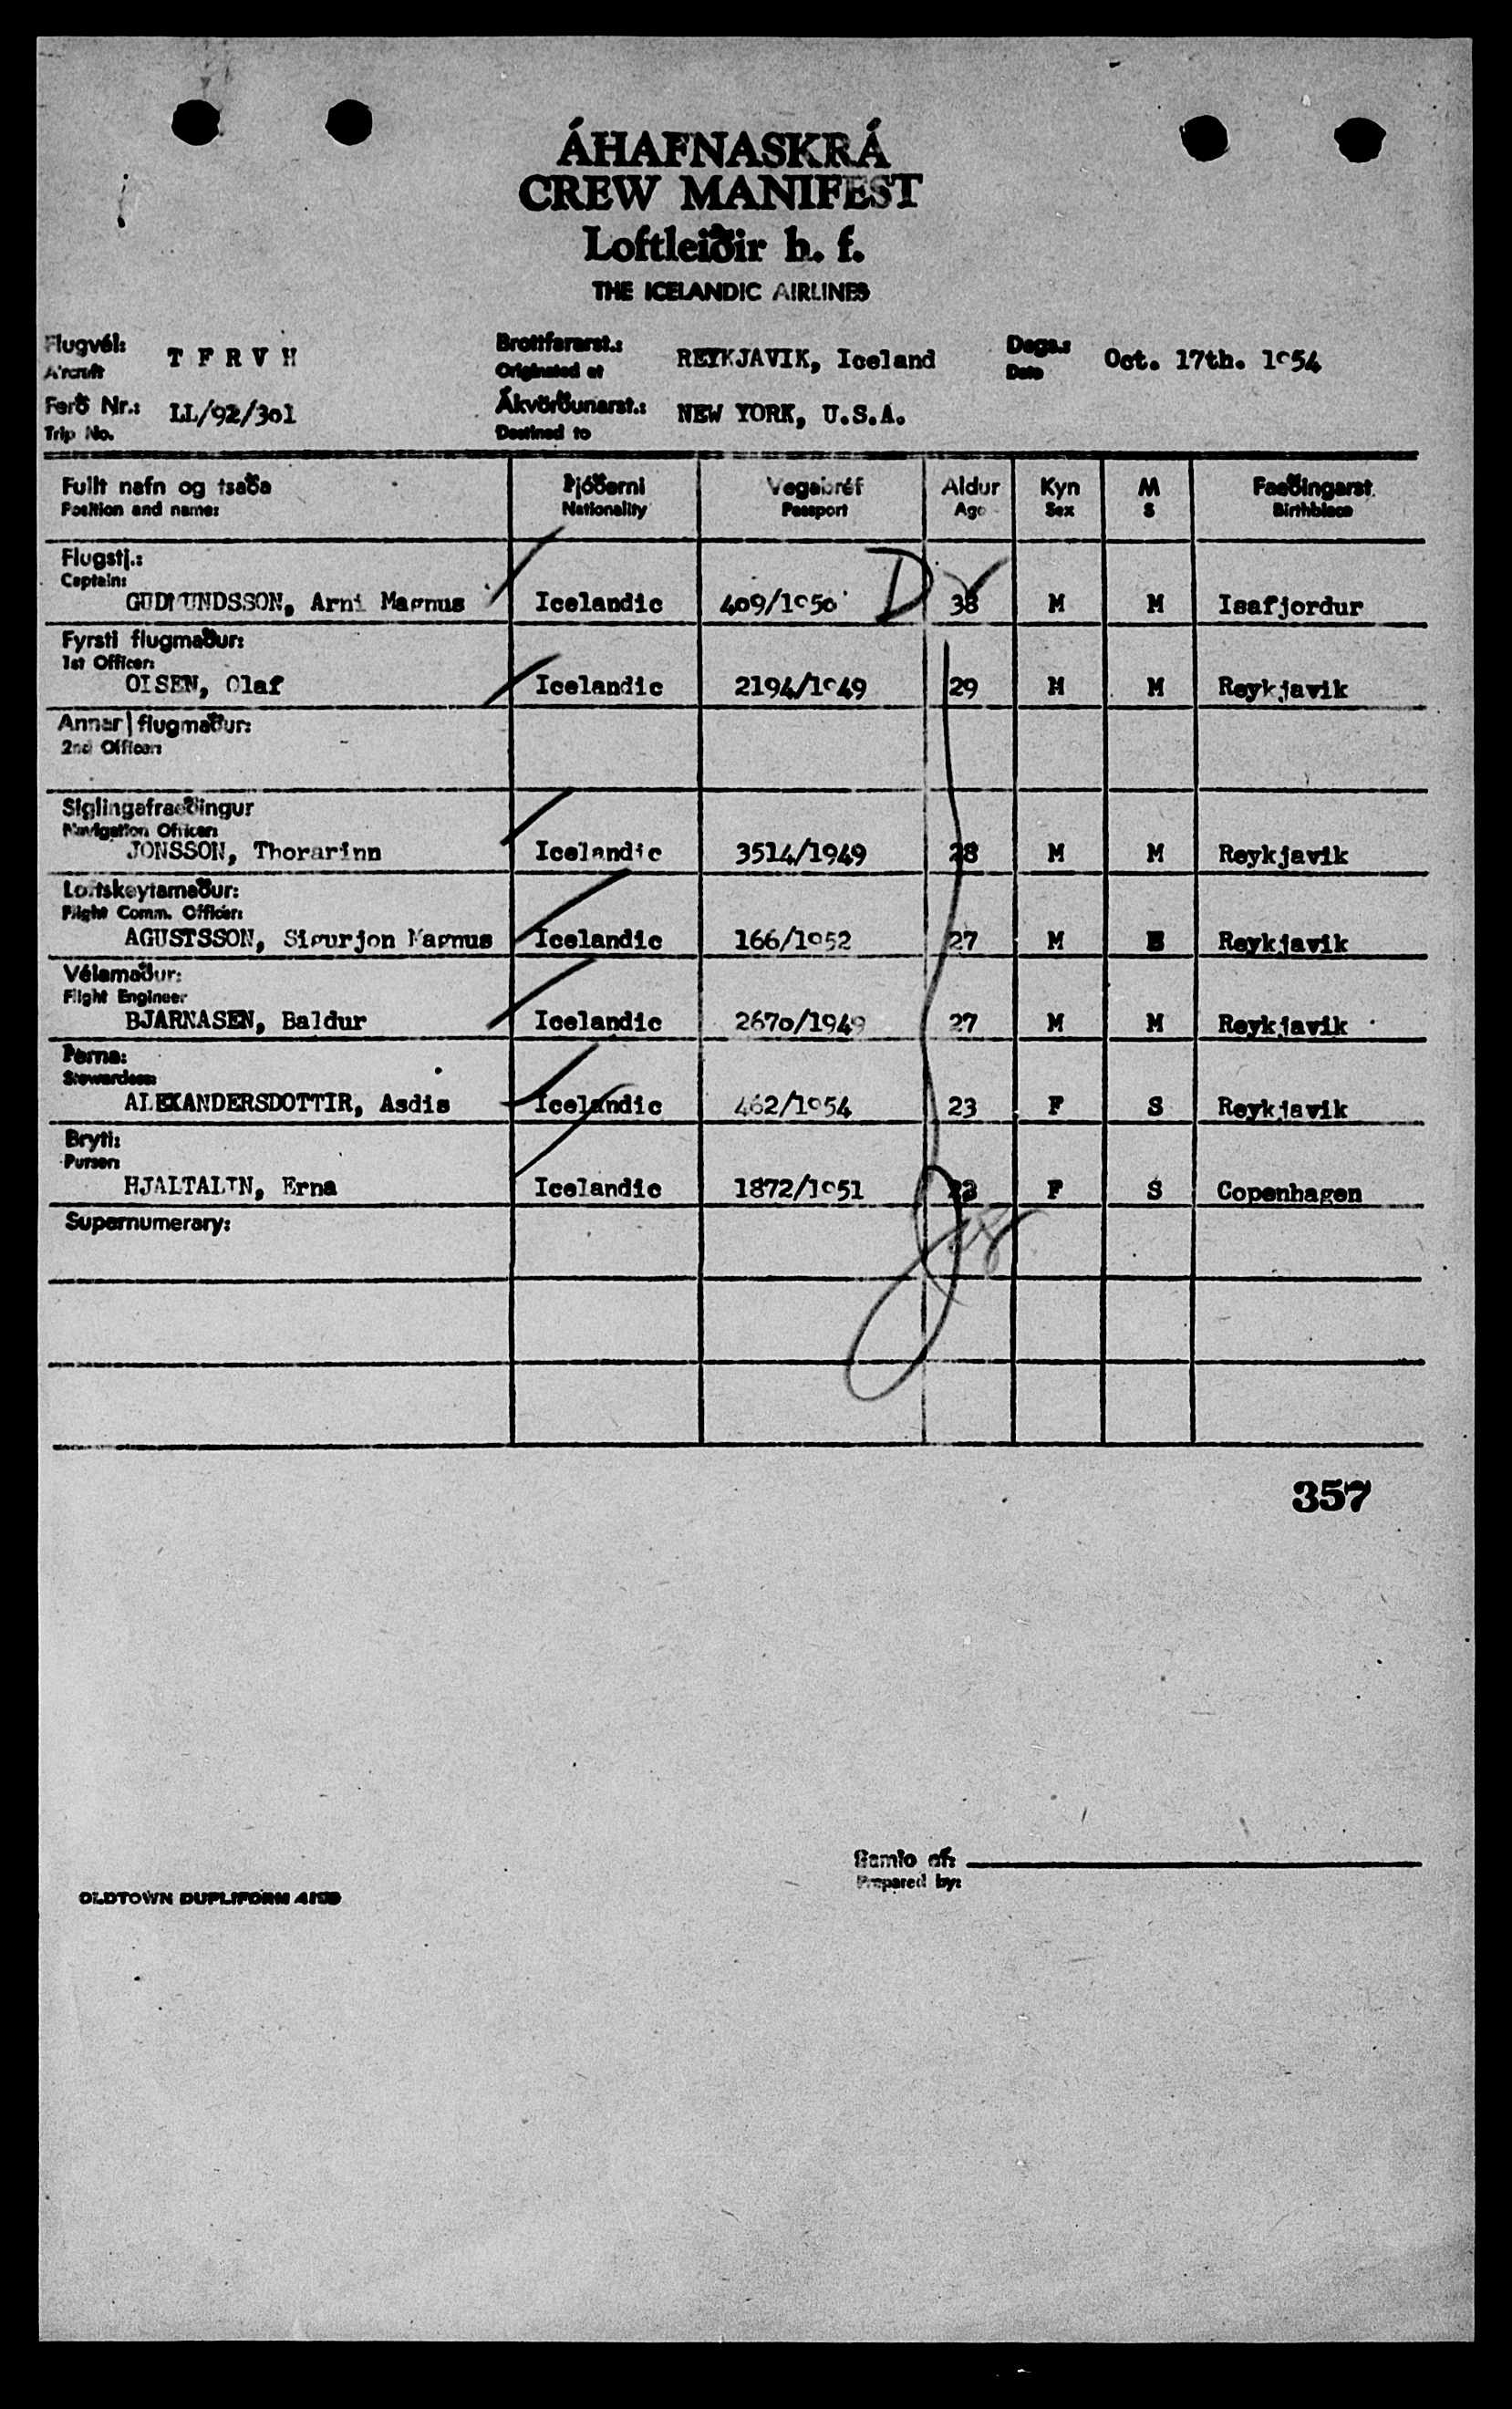 ÁHAFNASKRÁ
CREW MANIFEST
Loftleiðir h. f.
THE ICELANDIC AIRLINES
Flugvél: T F R V H Brottfararst.: REYKJAVIK, Iceland Dags.: Oct. 17th. 1954
Aircraft Originated at Date
Ferð Nr.: LL/92/301 Ákvörðunarst.: NEW YORK, U.S.A.
Trip No. Destined to
Fullt nafn og tsaða Þjóðerni Vegabréf Aldur Kyn M Faeðingarst.
Position and name: Nationality Passport Age Sex S Birthplace
Flugstj.:
Captain:
GUDMUNDSSON, Arni Magnus Icelandic 409/1950 D 38 M M Isafjordur
Fyrsti flugmaður:
1st Officer:
OLSEN, Olaf Icelandic 2194/1949 29 M M Reykjavik
Annar flugmaður:
2nd Officer:
Siglingafraeðingur
Navigation Officer:
JONSSON, Thorarinn Icelandic 3514/1949 28 M M Reykjavik
Loftskeytamaður:
Flight Comm. Officer:
AGUSTSSON, Sigurjon Magnus Icelandic 166/1952 27 M Reykjavik
Vélamaður:
Flight Engineer
BJARNASEN, Baldur Icelandic 2670/1949 27 M M Reykjavik
Þerna:
Stewardess:
ALEXANDERSDOTTIR, Asdis Icelandic 462/1954 23 F S Reykjavik
Bryti:
Purser:
HJALTALIN, Erna Icelandic 1872/1951 F S Copenhagen
Supernumerary:
357
Samið af:
Prepared by:
OLDTOWN DUPLIFORM